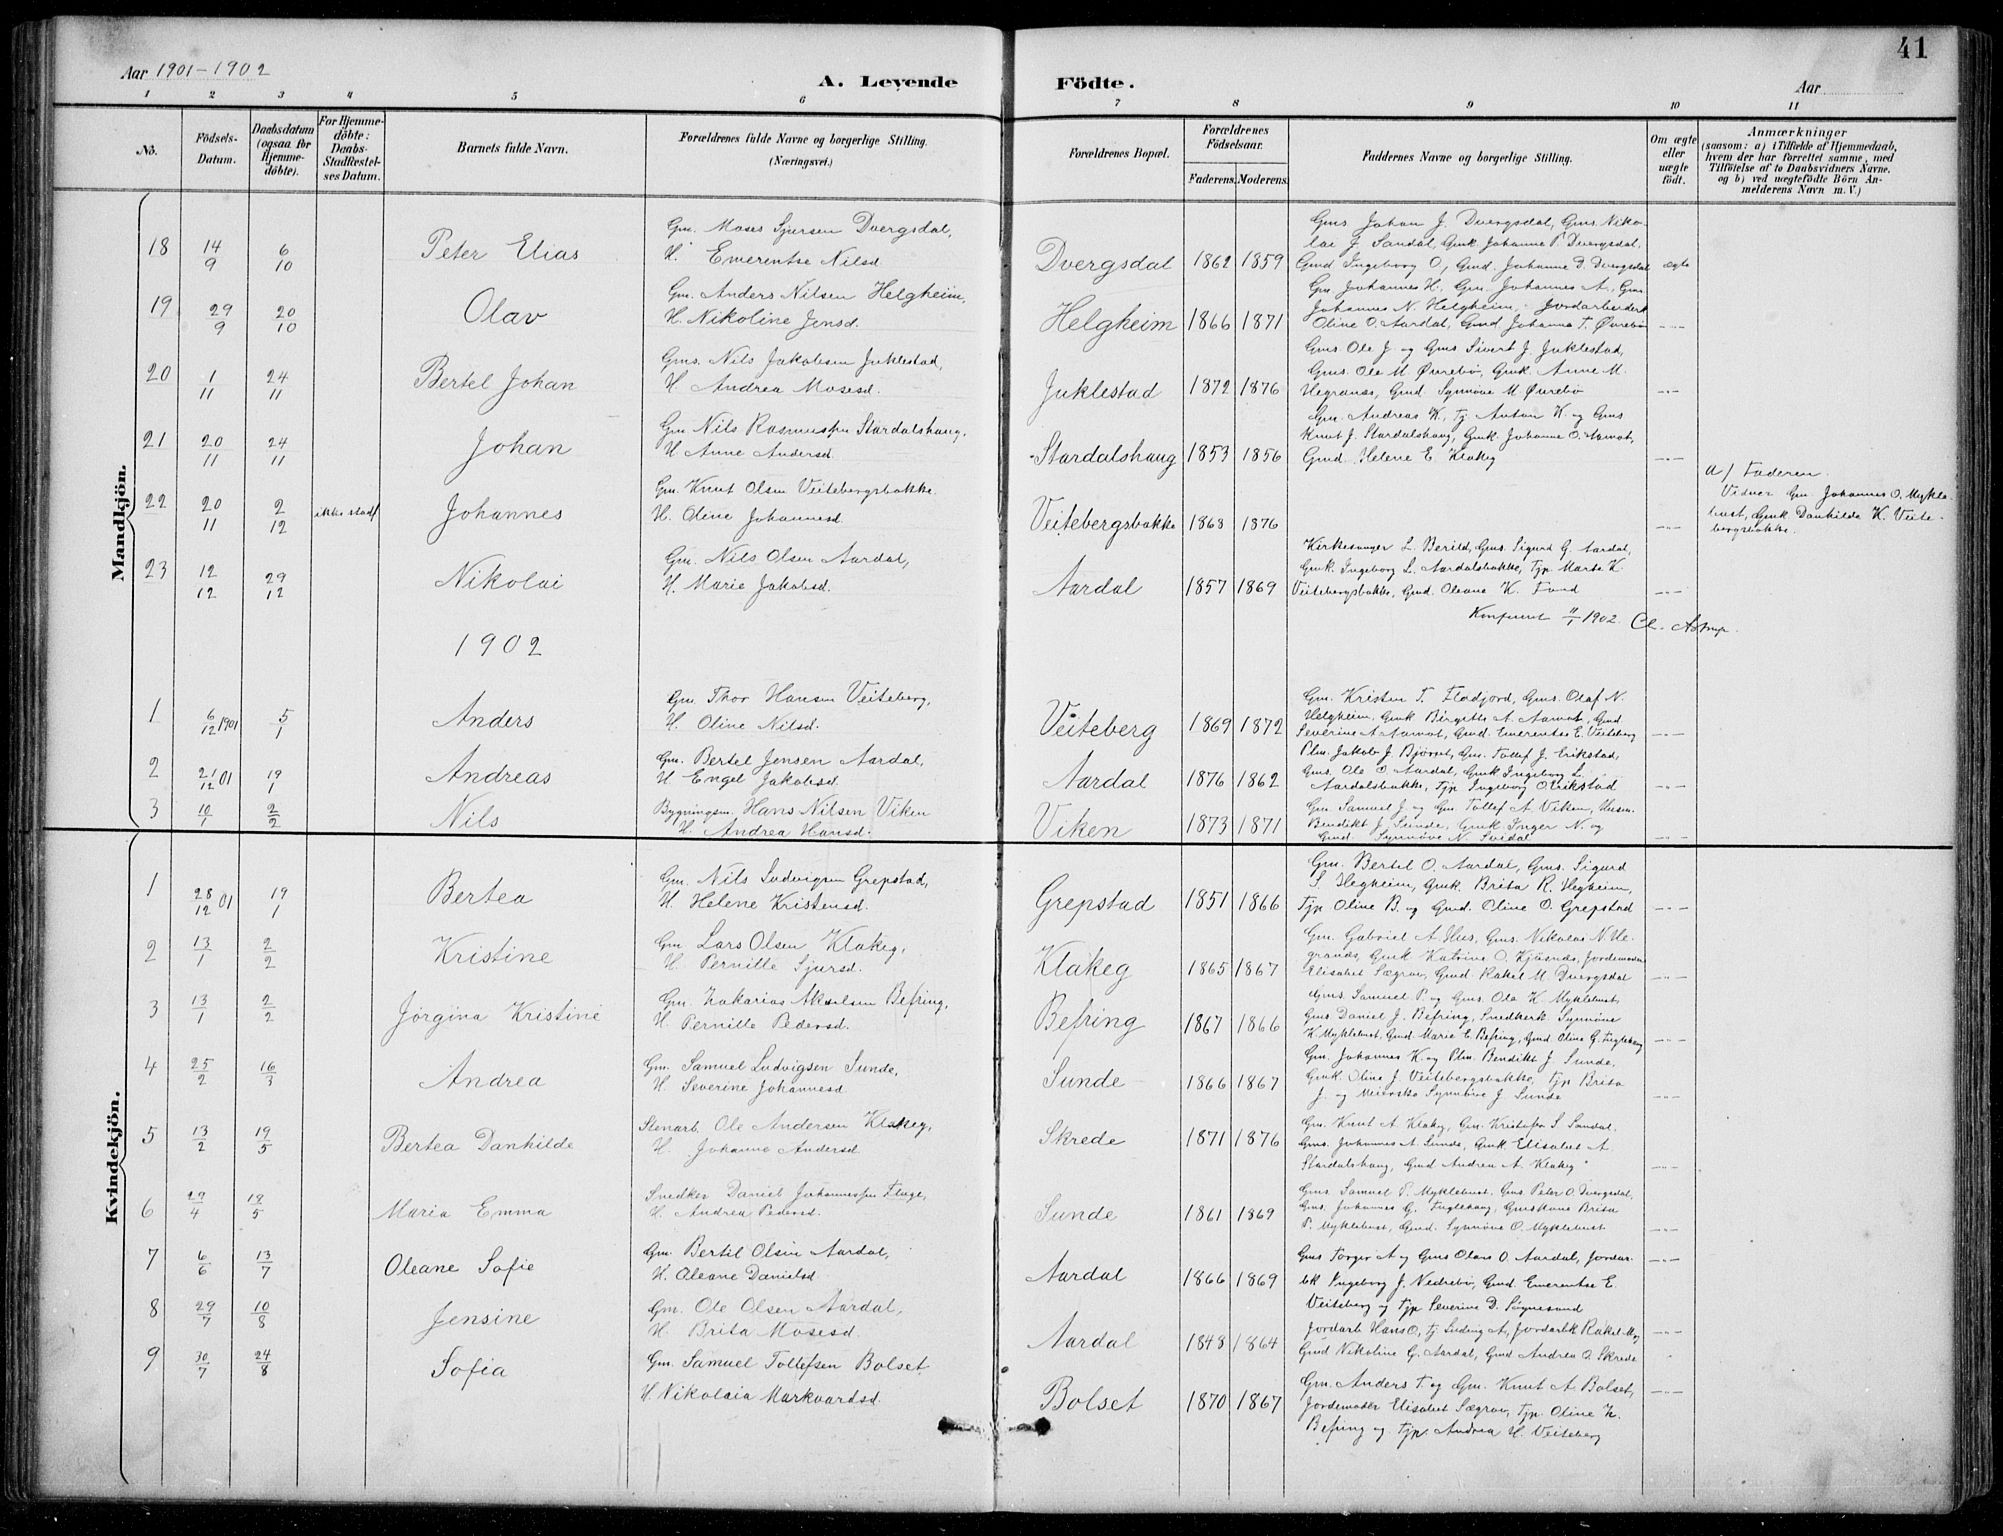 41
Aar 1901-1902
A. Levende Födte.
Aar
1 2 3 4 5 6 7 8 9 10 11
No.
Födsels-Datum.
Daabsdatum (ogsaa for Hjemmedöbte).
For Hjemmedöbte: Daabs-Stadfæstelses Datum.
Barnets fulde Navn.
Forældrenes fulde Navne og borgerlige Stilling.
(Næringsvei.)
Forældrenes Bopæl.
Forældrenes Födselsaar.
Faderens. Moderens.
Faddernes Navne og borgerlige Stilling.
Om ægte eller uægte födt.
Anmærkninger
(saasom: a) i Tilfælde af Hjemmedaab,
hvem der har forrettet samme, med
Tilföielse af to Daabsvidners Navne.
og b) ved uægtefödte Börn An-
melderens Navn m. V.)
Mandkjön.
18 14/9 6/10 Peter Elias
Gm. Moses Sjursen Dvergsdal,
H. Emerentse Nilsd
Dvergsdal 1862 1859
Gms Johan J. Dvergsdal, Gms. Niko-
lai J. Sandal, Gmk Johanne P. Dvergsdal,
Gmd Ingeborg O., Gmd. Johanne D. Dvergsdal ægte
19 29/9 20/10 Olav
Gm. Anders Nilsen Helgheim,
H. Nikoline Jensd.
Helgheim 1866 1871
Gm. Johannes H., Gm. Johannes A., Gms.
Johannes N. Helgheim, Jordarbeiderk
Oline O. Aardal, Gmd. Johanne T. Øvrebø
20 1/11 24/11 Bertel Johan
Gms. Nils Jakobsen Juklestad,
H. Andrea Mosesd.
Juklestad 1872 1876
Gms. Ole J. og Gms Sivert J. Juklestad,
Gms. Ole M. Øvrebø, Gmk. Anne M.
Hegranæs, Gmd. Synnøve M. Øvrebø
21 20/11 24/11 Johan
Gm Nils Rasmussen Stardalshaug,
H Anne Andersd.
Stardalshaug 1853 1856
Gm. Andreas K., Tj. Anton K. og Gms
Knut J. Stardalshaug, Gmk. Johanne O. Aamot,
Gmd. Helene E. Klakeg
22 20/11 2/12 ikke stadf Johannes
Gm. Knut Olsen Veitebergsbakke.
H. Oline Johannesd.
Veitebergsbakke 1868 1876
a) Faderen.
Vidner Gm. Johannes O. Mykle
bust, Gmk. Danhilde K. Veite-
bergsbakke.
23 12/12 29/12 Nikolai
Gm. Nils Olsen Aardal,
H. Marie Jakobsd.
Aardal 1857 1869
Kirkesanger L. Berild, Gms. Sigurd G. Aardal,
Gmk. Ingeborg L. Aardalsbakke, Tjp Marta K.
Veitebergsbakke, Gmd. Oleane K. Fond
Konfereret 11/1 1902. Cl. Astrup.
1902
1 6/12 1901 5/1 Anders
Gm. Thor Hansen Veiteberg,
H. Oline Nilsd.
Veiteberg 1869 1872
Gm. Kristen T. Fladjord, Gms. Olaf N.
Helgheim, Gmk Birgitte A. Aamot, Gmd
Severine A Aamot, Gmd. Emerentse E. Veiteberg
2 21/12 01 19/1 Andreas
Gm. Bertel Jensen Aardal,
H Engel Jakobsd.
Aardal 1876 1862
Plm. Jakob J. Bjørset, Gm. Tollef J. Erikstad,
Gms. Ole O. Aardal, Gmk Ingeborg L.
Aardalsbakke, Tjp Ingeborg O Erikstad
3 10/1 2/2 Nils
Bygningsm. Hans Nilsen Viken
H. Andrea Hansd.
Viken 1873 1871
Gm. Samuel J. og Gm. Tollef A. Viken, Husm.
Bendikt J. Sunde, Gmk Inger N. og
Gmd. Synnøve N. Svidal
Kvindekjön.
1 28/12 01 19/1 Bertea
Gm. Nils Ludvigsen Grepstad,
H. Helene Kristensd.
Grepstad 1851 1866
Gm. Bertel O. Aardal, Gms. Sigurd
S. Hegheim, Gmk. Brita R. Hegheim,
Tjp Oline B. og Gmd. Oline O. Grepstad
2 13/1 2/2 Kristine
Gm. Lars Olsen Klakeg,
H. Pernille Sjursd.
Klakeg 1865 1867
Gm. Gabriel A. Hus, Gms. Nikolas N. He-
granæs, Gmk Katrine O. Kjøsnæs, Jordemoder
Elisabet Sægrov, Gmd. Rakel M. Dvergsdal
3 13/1 2/2 Jørgina Kristine
Gm. Zakarias Akselsen Befring,
H. Pernille Pedersd.
Befring 1867 1866
Gms. Samuel P. og Gms. Ole K. Myklebust,
Gms Daniel J. Befring, Snedkerk. Synnøve
K Myklebust, Gmd. Marie E. Befring, Gmd. Oline G. Fugleberg
4 25/2 16/3 Andrea
Gm. Samuel Ludvigsen Sunde,
H. Severine Johannesd
Sunde 1866 1867
Gm. Johannes K. og Plm. Bendikt J. Sunde,
Gmk. Oline J. Veitebergsbakke, Tjp Brita
J. og Meierske Synnøve J Sunde
5 13/2 19/5 Bertea Danhilde
Stenarb. Ole Andersen Klakeg,
H. Johanne Andersd.
Skrede 1871 1876
Gm. Knut A. Klakeg, Gm. Kristofer S. Sandal.
Gms. Johannes A. Sunde, Gmk. Elisabet A.
Stardalshaug, Gmd Andrea A. Klakeg
6 29/4 19/5 Maria Emma
Snedker Daniel Johannessen Fluge,
H. Andrea Pedersd.
Sunde 1861 1869
Gms. Samuel P. Myklebust, Gms. Peter O. Dvergsdal,
Gms. Johannes G. Fuglehaug, Gmskone Brita
P. Myklebust, Gmd. Synnøve O. Myklebust
7 6/6 13/7 Oleane Sofie
Gm. Bertil Olsen Aardal,
H. Oleane Danielsd
Aardal 1866 1869
Gms Torger A og Gms Olars O. Aardal, Jordar-
bk Ingeborg J. Nedrebø, Gmd. Emerentse E.
Veiteberg og Tjp Severine D. Søgnesand
8 29/7 10/8 Jensine
Gm. Ole Olsen Aardal,
H. Brita Mosesd.
Aardal 1848 1864
Jordarb Hans O, Tj. Ludvig A, Jordarbk Rakel M og
Gmd Nikoline G. Aardal, Gmd Andrea O. Skrede
9 30/7 24/8 Sofia
Gm. Samuel Tollefsen Bolset
H. Nikolaia Markvardsd.
Bolset 1870 1867
Gm. Anders T. og Gm. Knut A. Bolset,
Jordemoder Elisabet Sægrov, Tjp. Oline Z.
Befring og Tjp. Andrea H. Veiteberg